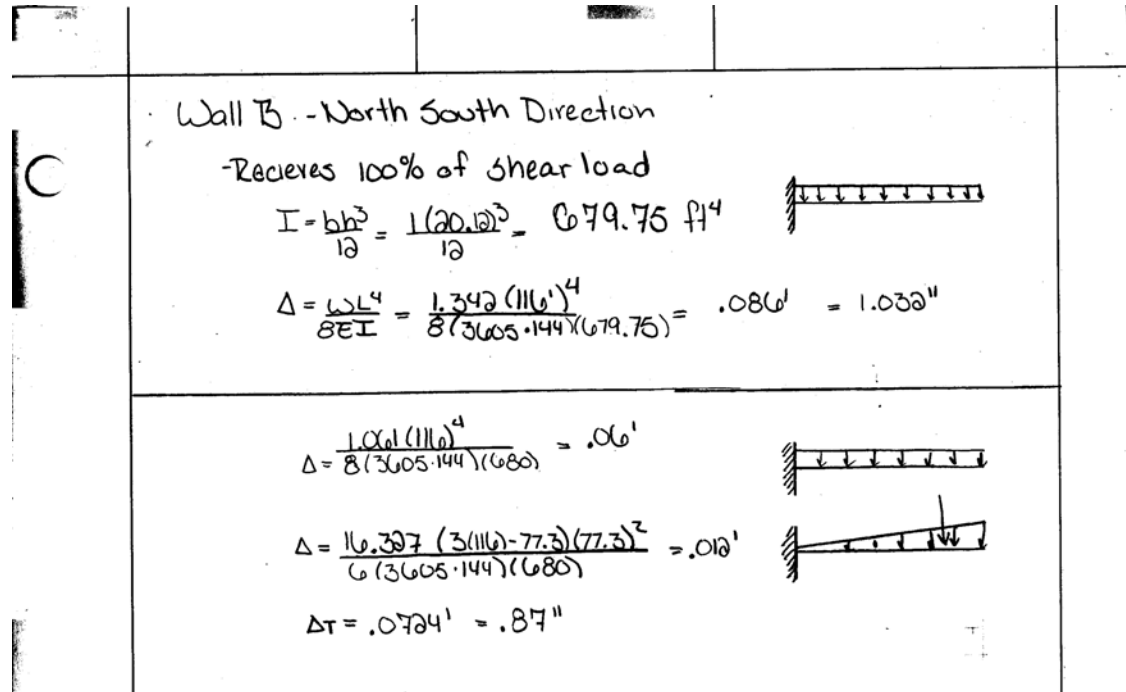 Wall B - North South Direction
-Recieves 100% of shear load
I = bh³/12 = 1(20.12)³/12 = 679.75 ft⁴
Δ = ωL⁴/8EI = 1.342(116')⁴/8(3605·144)(679.75) = .086' = 1.032"
Δ = 1.061(116)⁴/8(3605·144)(680) = .06'
Δ = 16.327 (3(116)-77.3)(77.3)²/6(3605·144)(680) = .012'
ΔT = .0724' = .87"